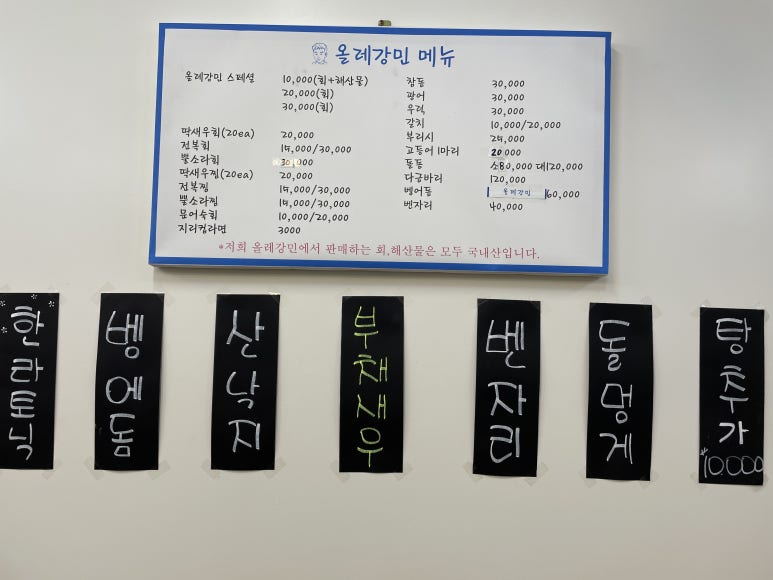 올레강민 메뉴
올레강민 스페셜 10,000(회+해산물)
20,000(회)
30,000(회)
딱새우회(20ea) 20,000
전복회 15,000/30,000
뿔소라회 30,000
딱새우찜(20ea) 20,000
전복찜 15,000/30,000
뿔소라찜 15,000/30,000
문어숙회 10,000/20,000
지리컵라면 3000
참돔 30,000
광어 30,000
우럭 30,000
갈치 10,000/20,000
부리시 25,000
고등어 1마리 20,000
돌돔 소80,000 대120,000
다금바리 120,000
벵어돔 올레강민 60,000
벤자리 40,000
*저희 올레강민에서 판매하는 회,해산물은 모두 국내산입니다.
한라토닉
벵에돔
산낙지
부채새우
벤자리
돌멍게
탕추가
₩10.000